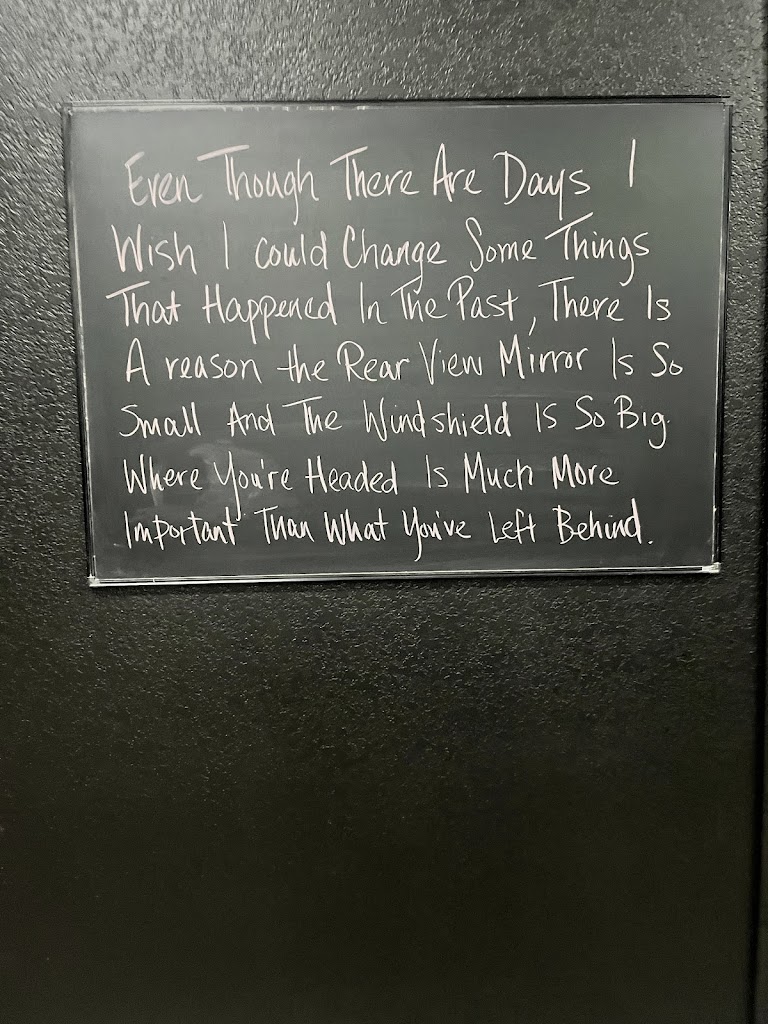 Even Though There Are Days I
Wish I could Change Some Things
That Happened In The Past, There Is
A reason the Rear View Mirror Is So
Small And The Windshield Is So Big.
Where You're Headed Is Much More
Important Than What You've Left Behind.